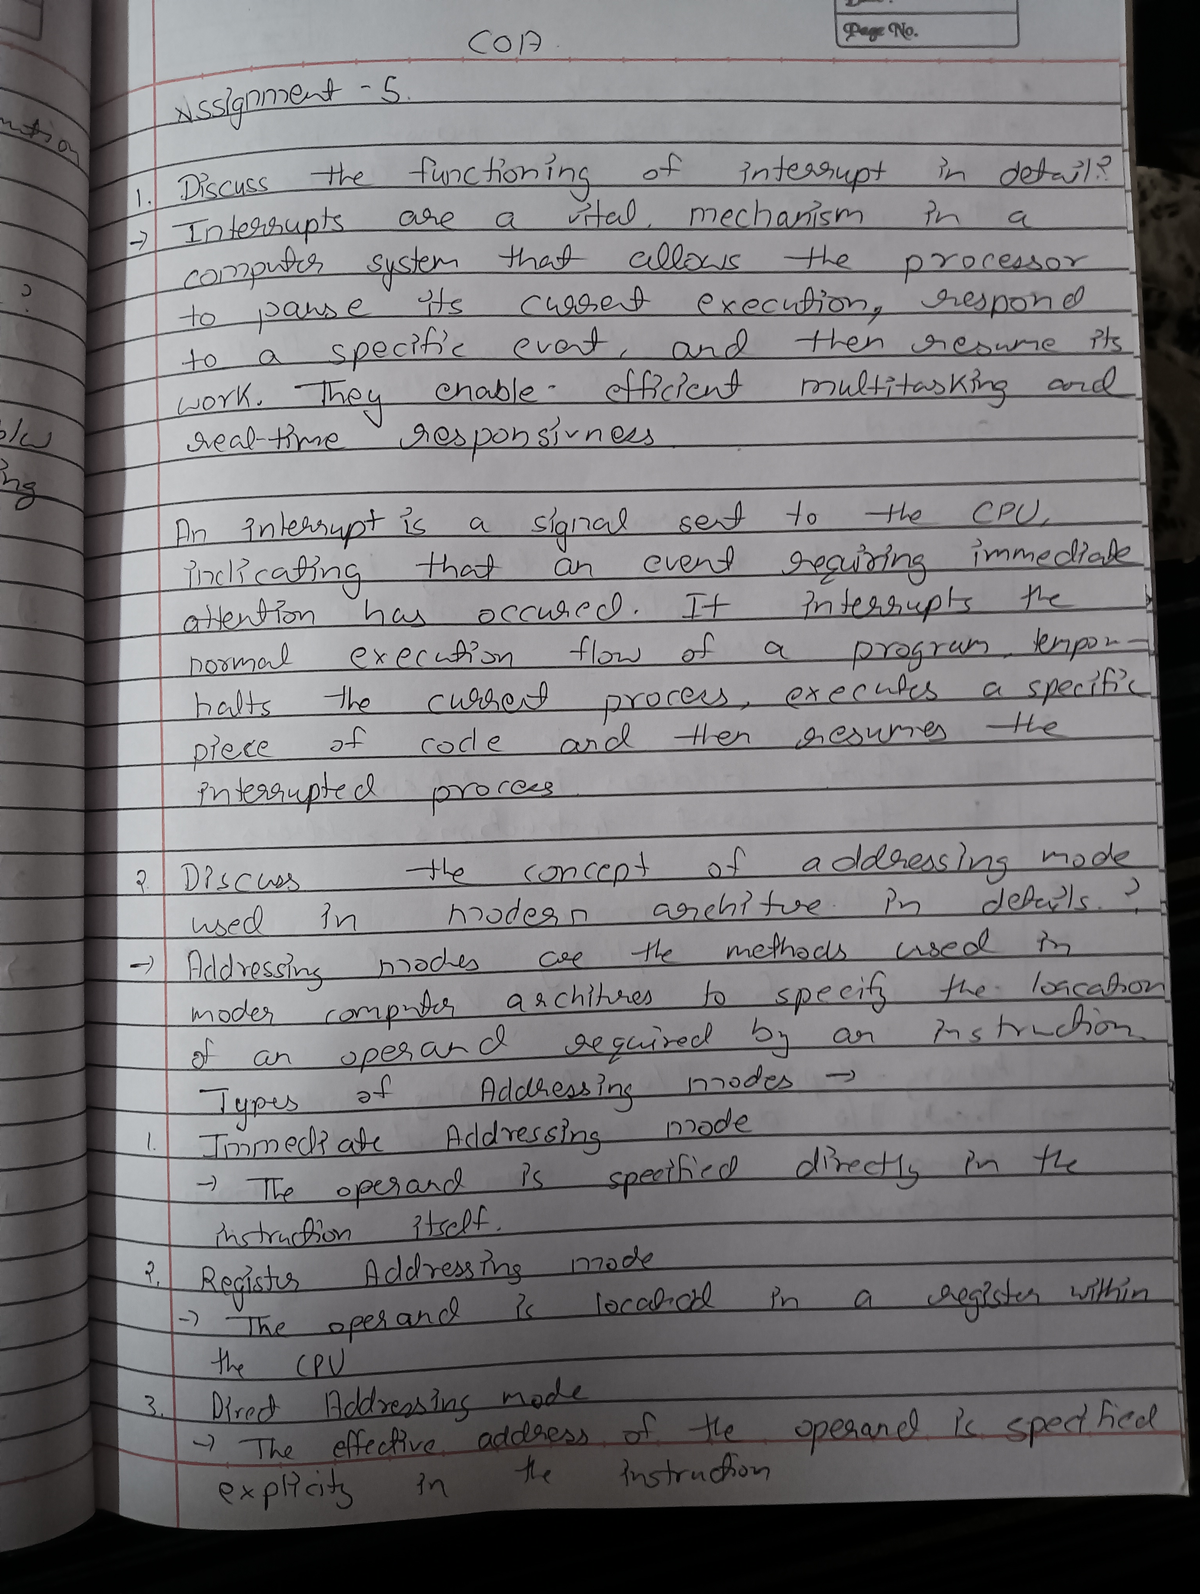 Page No.
COA
Assignment - 5.
1. Discuss the functioning of interrupt in detail?
→ Interrupts are a vital mechanism in a
computer system that allows the processor
to pause its current execution, respond
to a specific event, and then resume its
work. They enable efficient multitasking and
real-time responsivness
An interrupt is a signal sent to the CPU,
indicating that an event requiring immediate
attention has occured. It interrupts the
normal execution flow of a program, tempor-
halts the current process, executes a specific
piece of code and then resumes the
interrupted process
2. Discuss the concept of addressing mode
used in modern architure in details.?
→ Addressing modes are the methods used in
moder computer architures to specify the loacation
of an operand required by an instruction
Types of Addressing modes →
1. Immediate Addressing mode
→ The operand is specified directly in the
instruction itself.
2. Register Addressing mode
→ The operand is located in a register within
the CPU
3. Direct Addressing mode
→ The effective address of the operand is specified
explicity in the instruction
?
ing